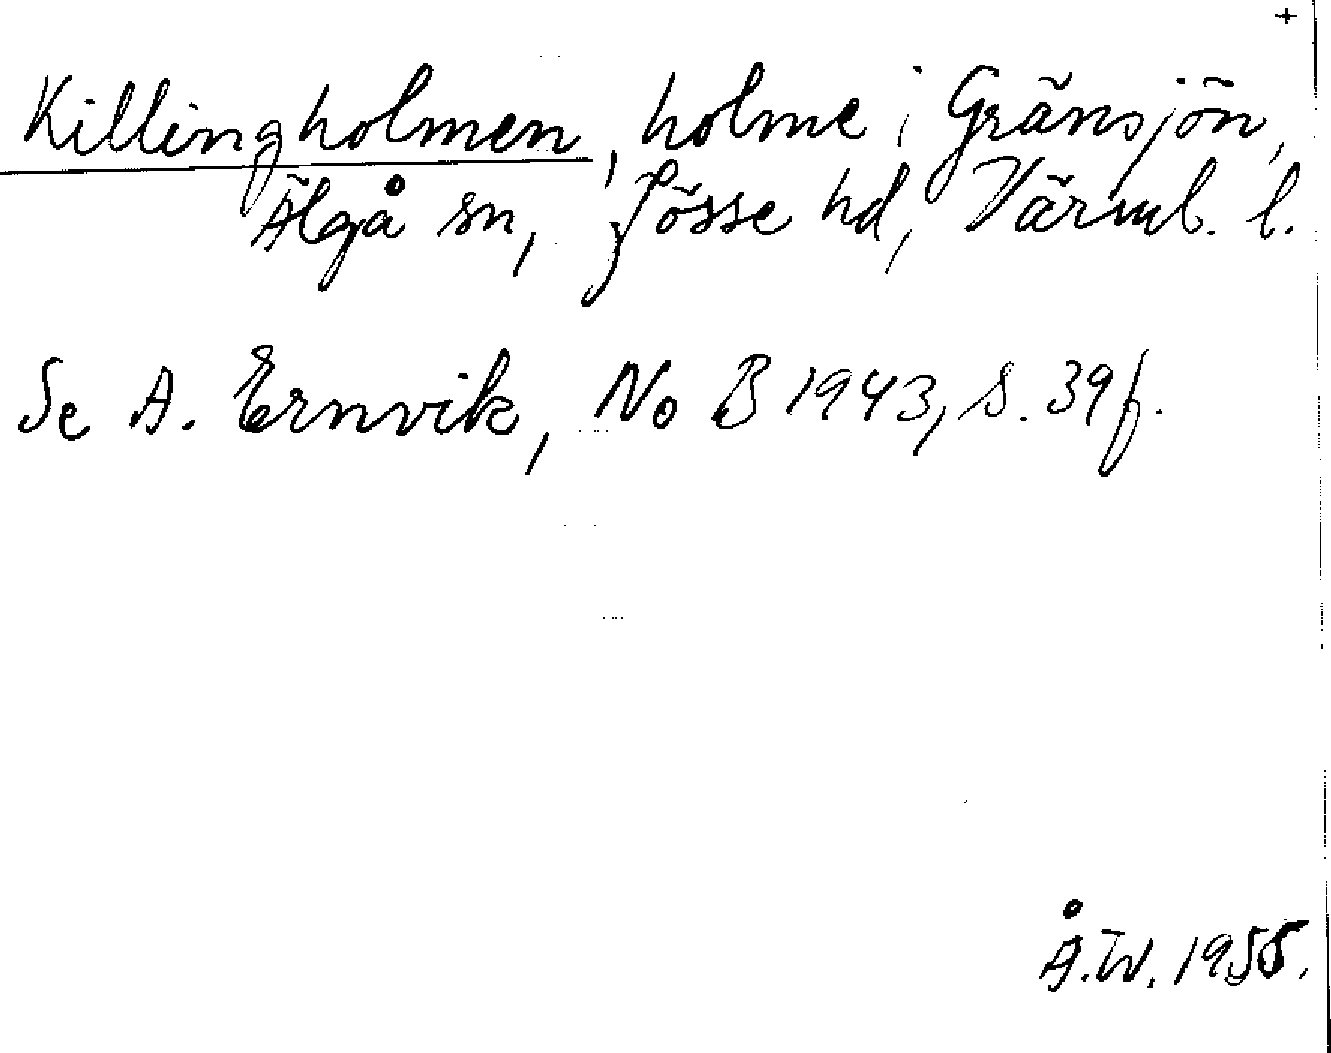 +
Killingholmen, holme i Gränsjön,
Älgå sn, Jösse hd, Värml. l.
Se A. Ernvik, NoB 1943, s. 39 f.
Å.W. 1955.